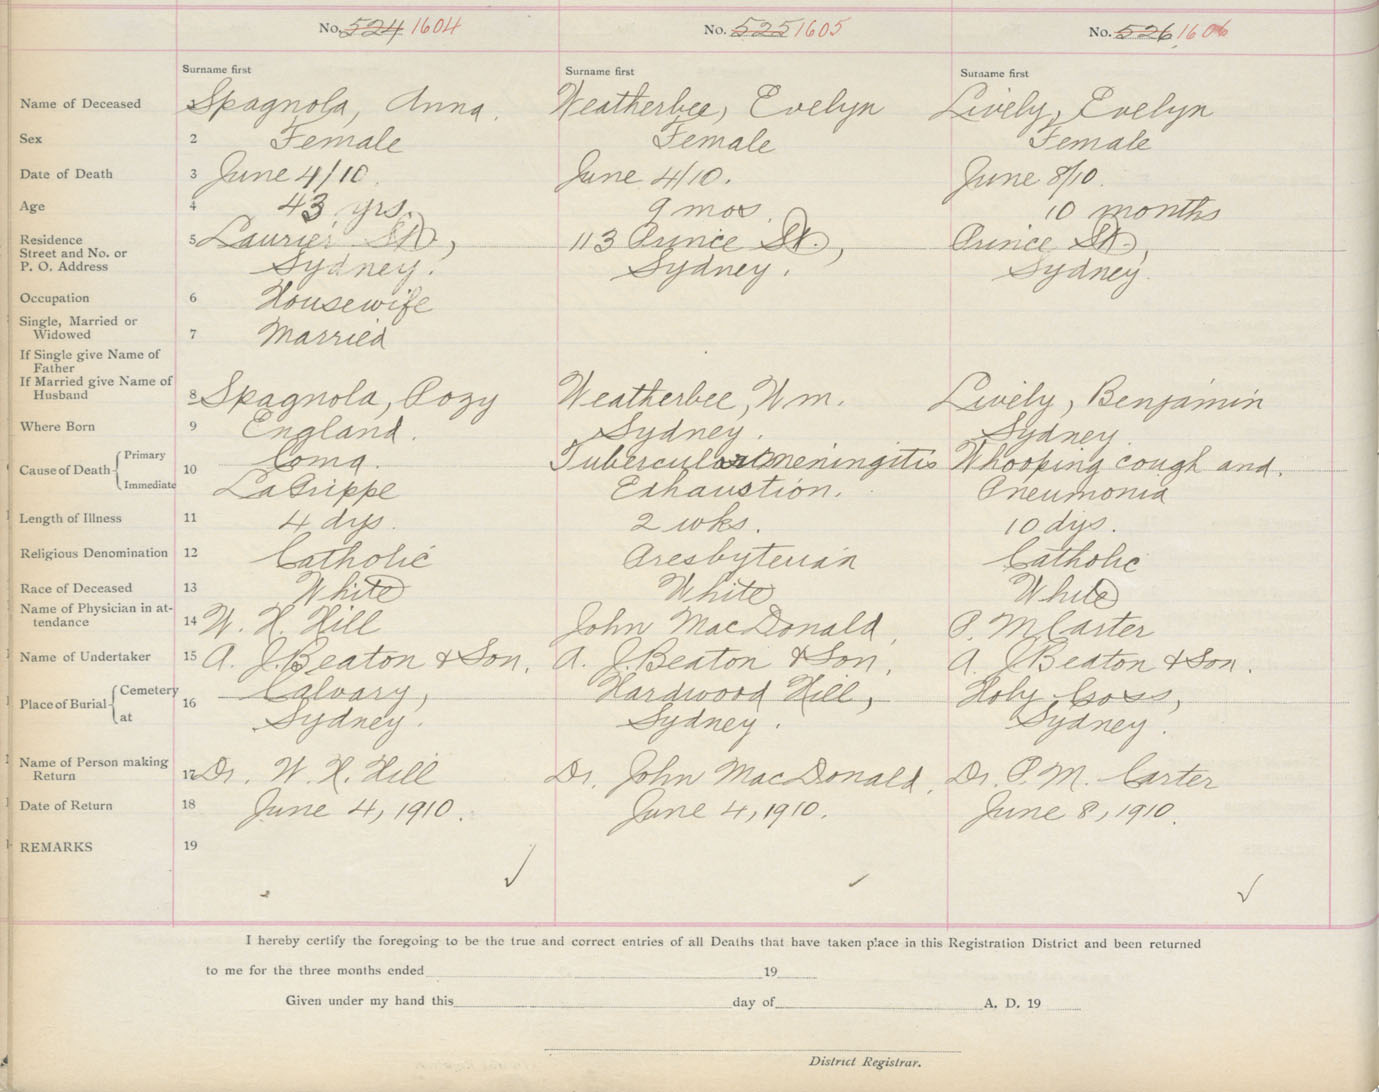 No. 524 1604 No. 525 1605 No. 526 1606
Surname first Surname first Surname first
Name of Deceased 1 Spagnola, Anna. Weatherbee, Evelyn Lively, Evelyn
Sex 2 Female Female Female
Date of Death 3 June 4/10. June 4/10. June 8/10.
Age 4 43 yrs. 9 mos. 10 months
Residence 5 Laurier St., 113 Prince St., Prince St.,
Street and No. or
P. O. Address Sydney. Sydney. Sydney.
Occupation 6 Housewife
Single, Married or
Widowed 7 Married
If Single give Name of
Father
If Married give Name of
Husband 8 Spagnola, Pozy Weatherbee, Wm. Lively, Benjamin
Where Born 9 England. Sydney. Sydney.
Cause of Death Primary 10 Coma. Tubercular meningitis Whooping cough and.
Immediate LaGrippe Exhaustion. Pneumonia
Length of Illness 11 4 dys. 2 wks. 10 dys.
Religious Denomination 12 Catholic Presbyterian Catholic
Race of Deceased 13 White White White
Name of Physician in at-
tendance 14 W. H. Hill John MacDonald, P. M. Carter
Name of Undertaker 15 A. J. Beaton & Son. A. J. Beaton & Son, A. J. Beaton & Son.
Place of Burial Cemetery 16 Calvary, Hardwood Hill, Holy Cross,
at Sydney. Sydney. Sydney.
Name of Person making
Return 17 Dr. W. H. Hill Dr. John MacDonald. Dr. P. M. Carter
Date of Return 18 June 4, 1910. June 4, 1910. June 8, 1910.
REMARKS 19
I hereby certify the foregoing to be the true and correct entries of all Deaths that have taken place in this Registration District and been returned
to me for the three months ended 19
Given under my hand this day of A. D. 19
District Registrar.